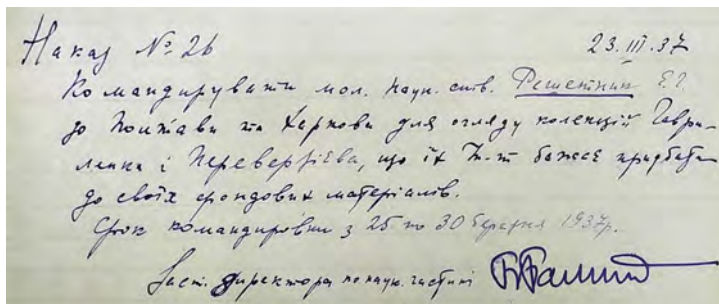 Наказ № 26 23.III.37
Командирувати мол. наук. спів. Решетник Є.Г.
до Полтави та Харкова для огляду колекцій Гаври-
ленка і Переверзієва, що їх Ін-т бажає придбати
до своїх фондових матеріалів.
Срок командировки з 25 по 30 березня 1937р.
Заст. директора по наук. частині